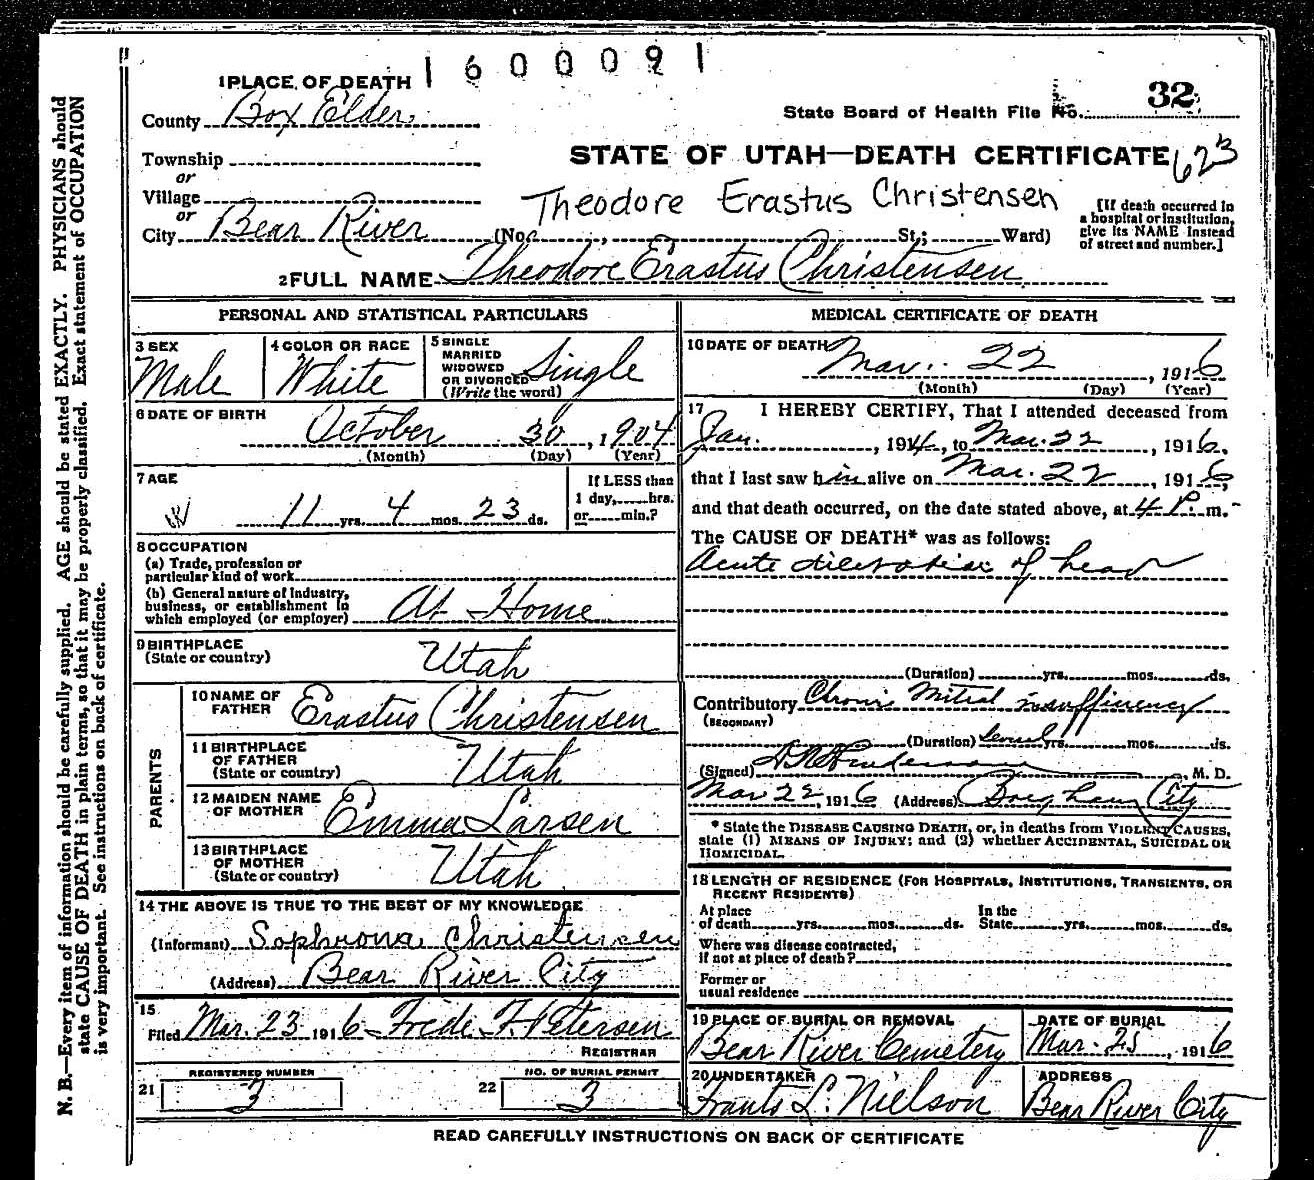 1600091
1 PLACE OF DEATH
County Box Elder
State Board of Health File No. 32
Township
or
STATE OF UTAH—DEATH CERTIFICATE 623
Village
or
Theodore Erastus Christensen
City Bear River (No. , St.; Ward)
[If death occurred in
a hospital or institution,
give its NAME instead
of street and number.]
2 FULL NAME Theodore Erastus Christensen
PERSONAL AND STATISTICAL PARTICULARS
3 SEX
Male
4 COLOR OR RACE
White
5 SINGLE
MARRIED
WIDOWED
OR DIVORCED
(Write the word)
Single
6 DATE OF BIRTH
October 30, 1904
(Month) (Day) (Year)
7 AGE
11 yrs. 4 mos. 23 ds.
If LESS than
1 day, hrs.
or min.?
8 OCCUPATION
(a) Trade, profession or
particular kind of work
(b) General nature of Industry,
business, or establishment in
which employed (or employer) At Home
9 BIRTHPLACE
(State or country) Utah
PARENTS
10 NAME OF
FATHER Erastus Christensen
11 BIRTHPLACE
OF FATHER
(State or country) Utah
12 MAIDEN NAME
OF MOTHER Emma Larsen
13 BIRTHPLACE
OF MOTHER
(State or country) Utah
14 THE ABOVE IS TRUE TO THE BEST OF MY KNOWLEDGE
(Informant) Sophrona Christensen
(Address) Bear River City
15
Filed Mar. 23 1916 Frede F. Petersen
REGISTRAR
21 REGISTERED NUMBER
3
22 NO. OF BURIAL PERMIT
3
MEDICAL CERTIFICATE OF DEATH
16 DATE OF DEATH
Mar. 22, 1916
(Month) (Day) (Year)
17 I HEREBY CERTIFY, That I attended deceased from
Jan. , 1914, to Mar. 22, 1916,
that I last saw him alive on Mar. 22, 1916,
and that death occurred, on the date stated above, at 4 P. m.
The CAUSE OF DEATH* was as follows:
Acute dilatation of heart
(Duration) yrs. mos. ds.
Contributory Chronic Mitral insufficiency
(SECONDARY)
(Duration) several yrs. mos. ds.
(Signed) , M. D.
Mar 22, 1916 (Address) Brigham City
* State the DISEASE CAUSING DEATH, or, in deaths from VIOLENT CAUSES,
state (1) MEANS OF INJURY; and (2) whether ACCIDENTAL, SUICIDAL OR
HOMICIDAL.
18 LENGTH OF RESIDENCE (FOR HOSPITALS, INSTITUTIONS, TRANSIENTS, OR
RECENT RESIDENTS)
At place In the
of death yrs. mos. ds. State yrs. mos. ds.
Where was disease contracted,
if not at place of death?
Former or
usual residence
19 PLACE OF BURIAL OR REMOVAL
Bear River Cemetery
DATE OF BURIAL
Mar. 25, 1916
20 UNDERTAKER
Frants L. Nielson
ADDRESS
Bear River City
READ CAREFULLY INSTRUCTIONS ON BACK OF CERTIFICATE
N. B.—Every item of information should be carefully supplied. AGE should be stated EXACTLY. PHYSICIANS should
state CAUSE OF DEATH in plain terms, so that it may be properly classified. Exact statement of OCCUPATION
is very important. See instructions on back of certificate.